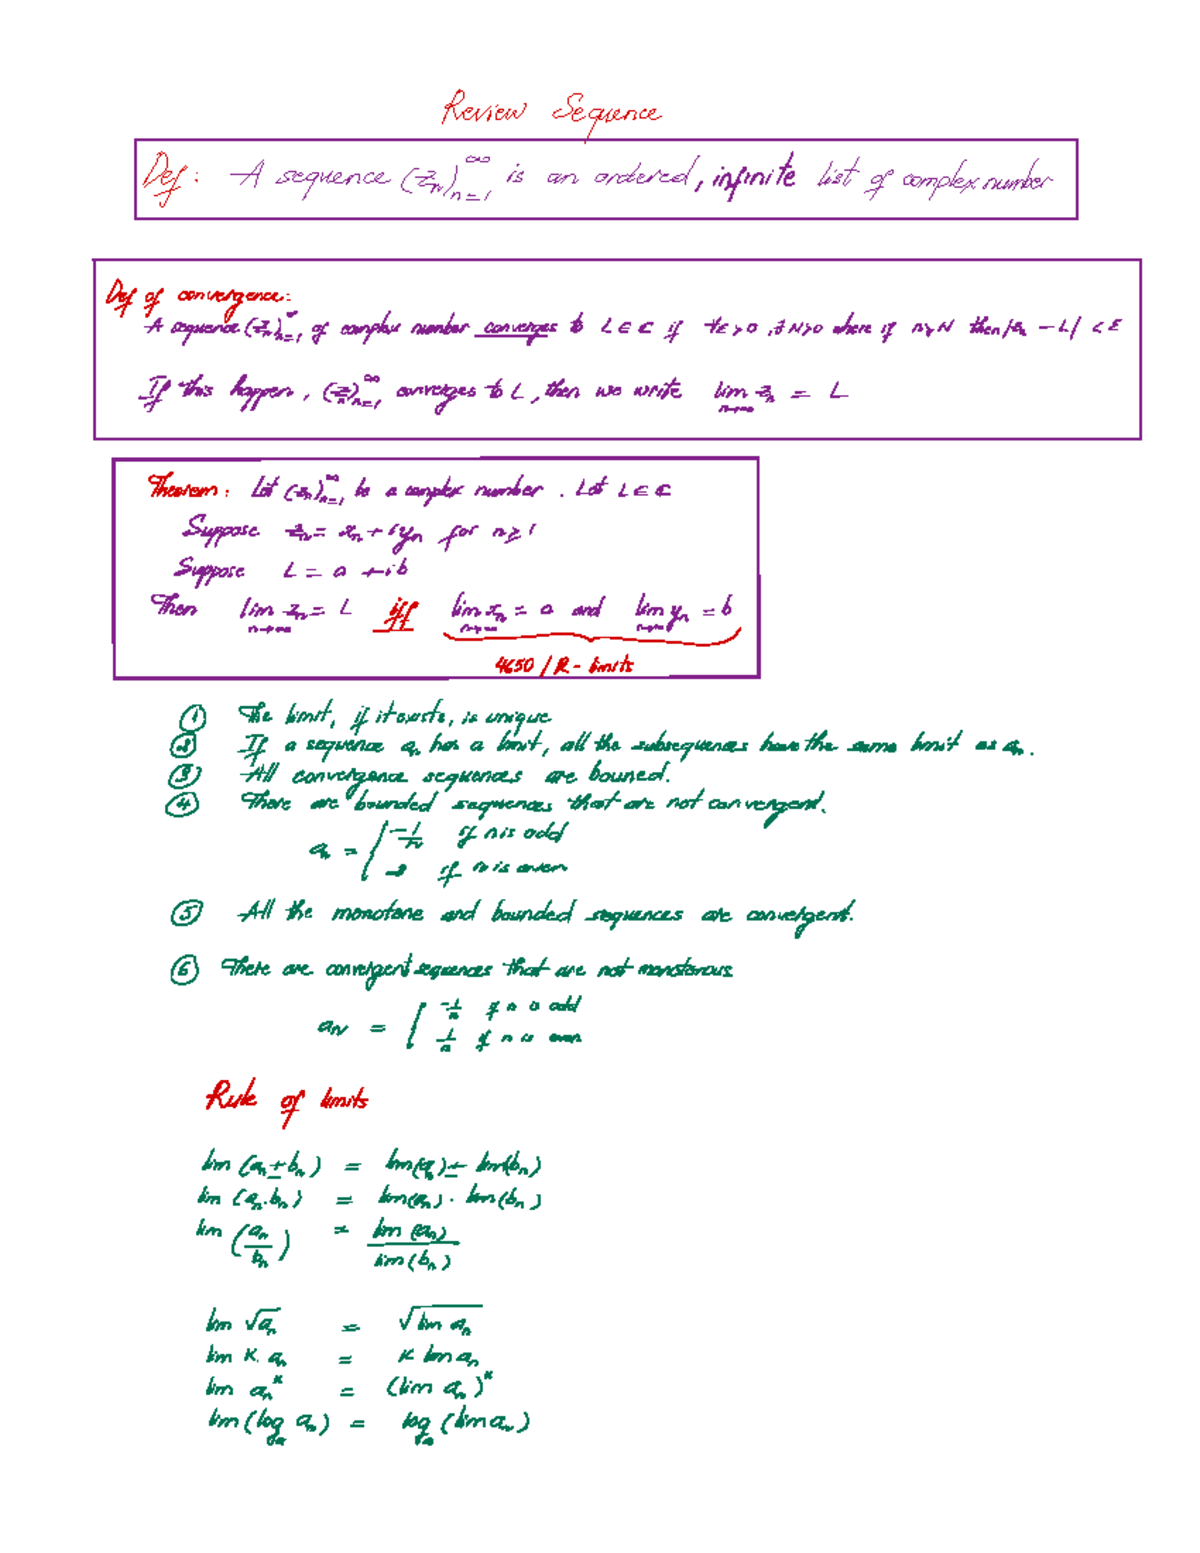 Review Sequence
Def: A sequence (zₙ)ₙ₌₁^∞ is an ordered, infinite list of complex number
Def of convergence:
A sequence (zₙ)ₙ₌₁^∞ of complex number converges to L ∈ ℂ if ∀ε>0, ∃N>0 where if n≥N then |zₙ - L| < ε
If this happen, (zₙ)ₙ₌₁^∞ converges to L, then we write lim_{n→∞} zₙ = L
Theorem: Let (zₙ)ₙ₌₁^∞ be a complex number. Let L ∈ ℂ
Suppose zₙ = xₙ + iyₙ for n ≥ 1
Suppose L = a + ib
Then lim_{n→∞} zₙ = L iff lim_{n→∞} xₙ = a and lim_{n→∞} yₙ = b
4650 / R - limits
① The limit, if it exists, is unique
② If a sequence aₙ has a limit, all the subsequences have the same limit as aₙ.
③ All convergence sequences are bouned.
④ There are bounded sequences that are not convergent.
aₙ = { -1/n if n is odd
2 if n is even
⑤ All the monotone and bounded sequences are convergent.
⑥ There are convergent sequences that are not monotonous
aₙ = { -1/n if n is odd
1/n if n is even
Rule of limits
lim (aₙ ± bₙ) = lim(aₙ) ± lim(bₙ)
lim (aₙ.bₙ) = lim(aₙ) · lim(bₙ)
lim (aₙ/bₙ) = lim(aₙ)/lim(bₙ)
lim √aₙ = √lim aₙ
lim K. aₙ = K lim aₙ
lim aₙ^K = (lim aₙ)^K
lim (log_a aₙ) = log_a (lim aₙ)